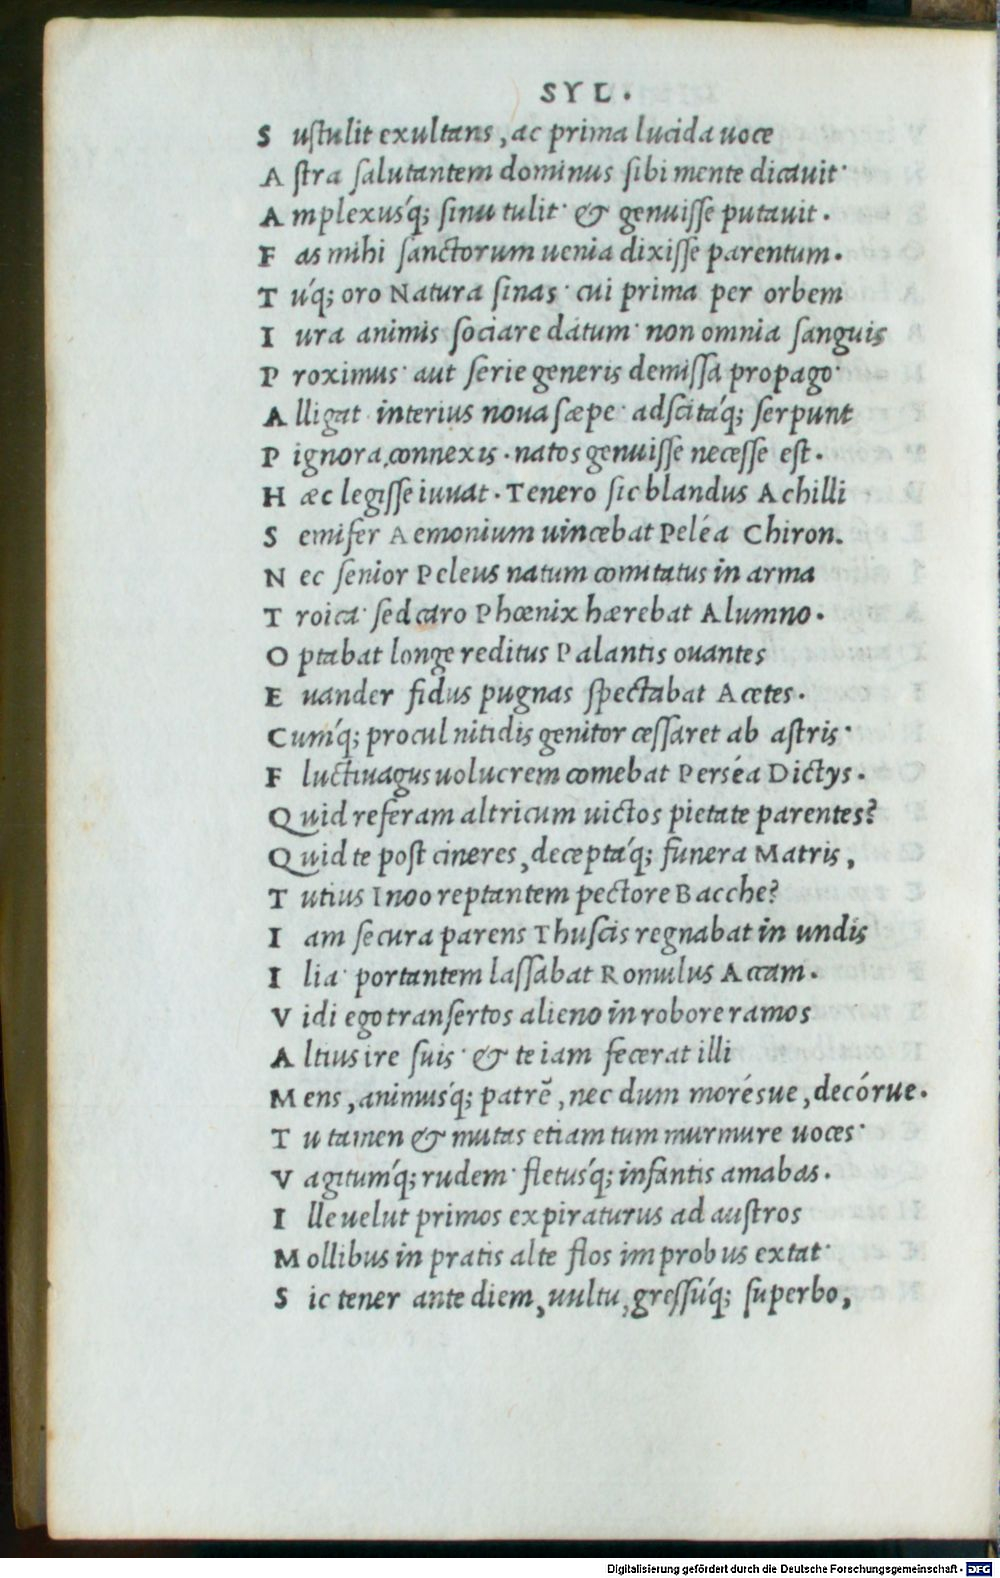 SYL.
S ustulit exultans, ac prima lucida uoce
A stra salutantem dominus sibi mente dicauit·
A mplexusq́; sinu tulit· & genuisse putauit.
F as mihi sanctorum uenia dixisse parentum.
T úq; oro Natura sinas· cui prima per orbem
I ura animis sociare datum· non omnia sanguis
P roximus· aut serie generis demissa propago·
A lligat interius noua sæpe· adscitáq; serpunt
P ignora, connexis. natos genuisse necesse est.
H æc legisse iuuat. Tenero sic blandus Achilli
S emifer Aemonium uincebat Peléa Chiron.
N ec senior Peleus natum comitatus in arma
T roica· sed caro Phœnix hærebat Alumno.
O ptabat longe reditus Palantis ouantes
E uander fidus pugnas spectabat Acetes.
C umq́; procul nitidis genitor cessaret ab astris·
F luctiuagus uolucrem comebat Perséa Dictys.
Q uid referam altricum uictos pietate parentes?
Q uid te post cineres, deceptáq; funera Matris,
T utius Inoo reptantem pectore Bacche?
I am secura parens Thuscis regnabat in undis
I lia· portantem lassabat Romulus Accam.
V idi ego transertos alieno in robore ramos
A ltius ire suis· & te iam fecerat illi
M ens, animusq́; patrē, nec dum morésue, decórue.
T u tamen & mutas etiam tum murmure uoces·
V agitumq́; rudem· fletusq́; infantis amabas.
I lle uelut primos expiraturus ad austros
M ollibus in pratis alte flos improbus extat·
S ic tener ante diem, uultu, gressúq; superbo,
Digitalisierung gefördert durch die Deutsche Forschungsgemeinschaft - DFG